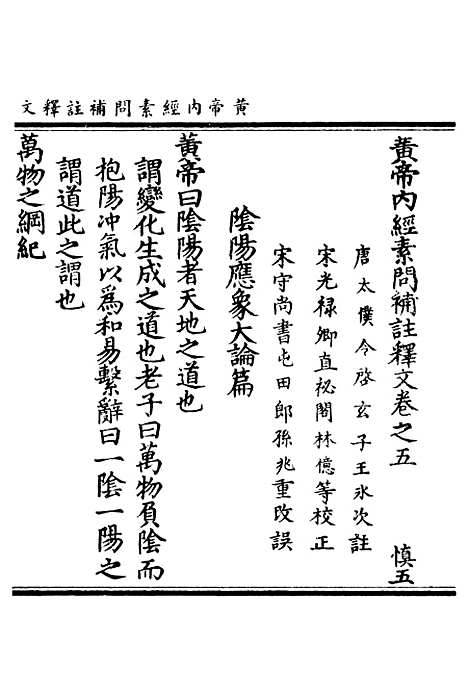 黃帝內經素問補註釋文
黃帝內經素問補註釋文卷之五　慎五
唐太僕令啓玄子王氷次註
宋光祿卿直祕閣林億等校正
宋守尚書屯田郎孫兆重改誤
陰陽應象大論篇
黃帝曰陰陽者天地之道也
謂變化生成之道也老子曰萬物負陰而
抱陽冲氣以爲和易繫辭曰一陰一陽之
謂道此之謂也
萬物之綱紀